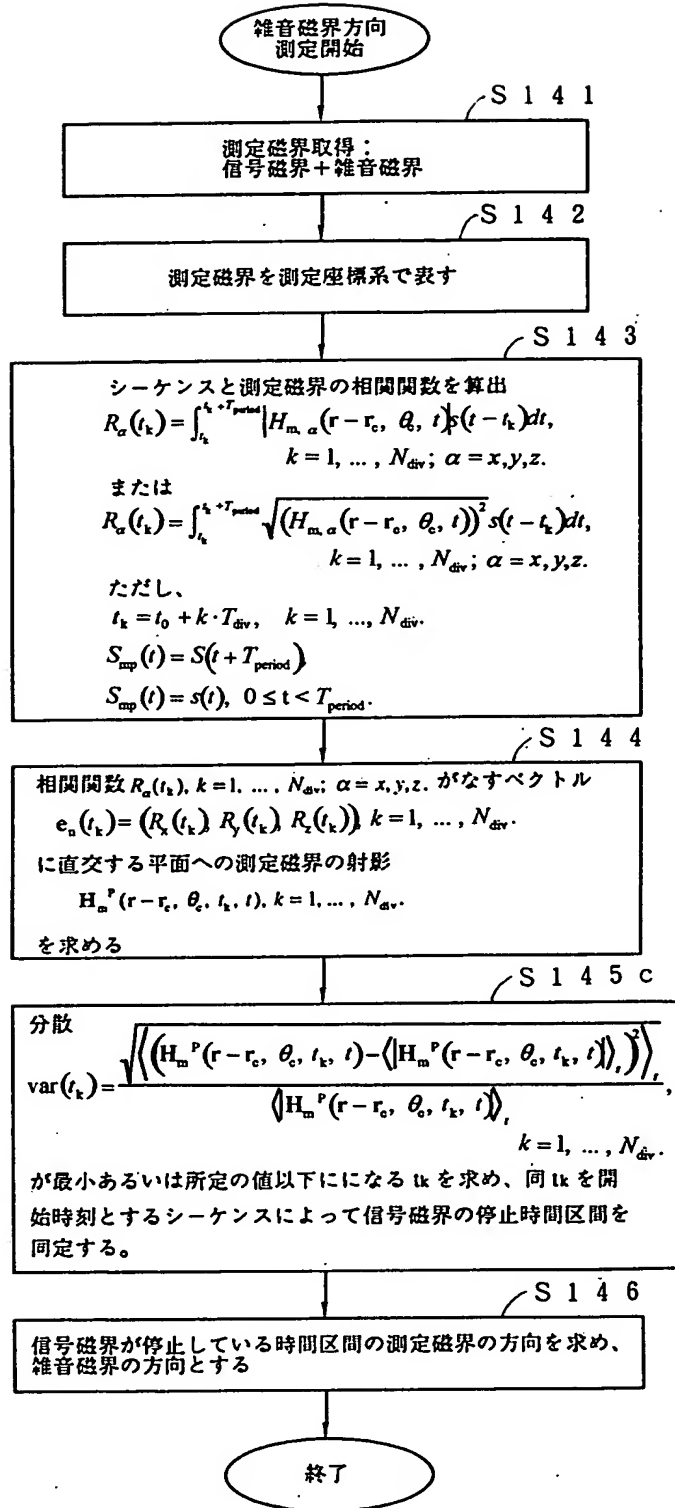 雑音磁界方向
測定開始
S141
測定磁界取得：
信号磁界＋雑音磁界
S142
測定磁界を測定座標系で表す
S143
シーケンスと測定磁界の相関関数を算出
R_α(t_k) = ∫_{t_k}^{t_k+T_period} |H_{m, α}(r−r_c, θ_c, t)|s(t−t_k)dt,
k = 1, ... , N_div; α = x,y,z.
または
R_α(t_k) = ∫_{t_k}^{t_k+T_period} √((H_{m, α}(r−r_c, θ_c, t))²) s(t−t_k)dt,
k = 1, ... , N_div; α = x,y,z.
ただし、
t_k = t_0 + k·T_div, k = 1, ..., N_div.
S_mp(t) = S(t + T_period),
S_mp(t) = s(t), 0 ≤ t < T_period.
S144
相関関数 R_α(t_k), k=1, ... , N_div; α=x,y,z. がなすベクトル
e_n(t_k) = (R_x(t_k), R_y(t_k), R_z(t_k)), k = 1, ... , N_div.
に直交する平面への測定磁界の射影
H_m^P(r−r_c, θ_c, t_k, t), k = 1, ... , N_div.
を求める
S145c
分散
var(t_k) = √⟨(H_m^P(r−r_c, θ_c, t_k, t)−⟨|H_m^P(r−r_c, θ_c, t_k, t)|⟩_t)²⟩_t / ⟨|H_m^P(r−r_c, θ_c, t_k, t)|⟩_t,
k = 1, ... , N_div.
が最小あるいは所定の値以下にになる tk を求め、同 tk を開
始時刻とするシーケンスによって信号磁界の停止時間区間を
同定する。
S146
信号磁界が停止している時間区間の測定磁界の方向を求め、
雑音磁界の方向とする
終了